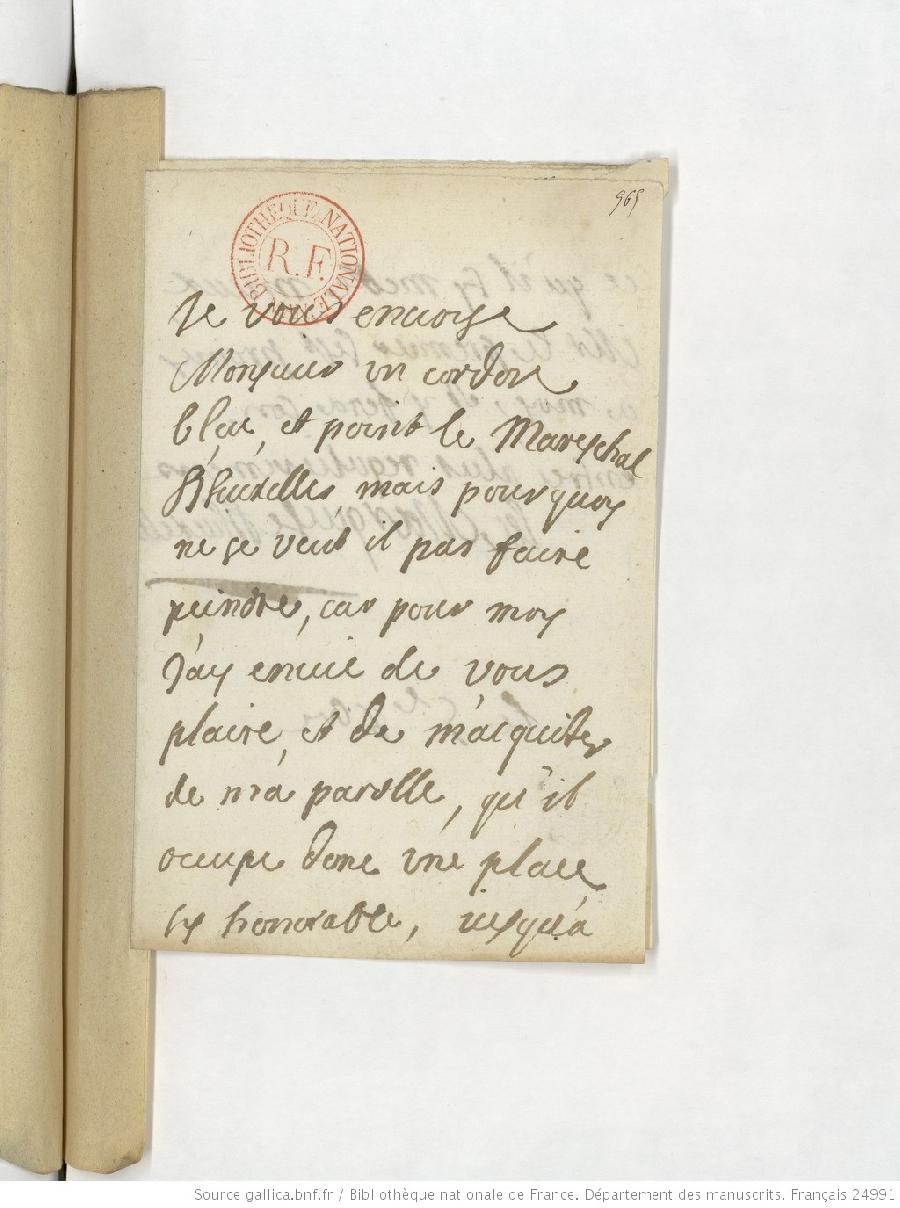 965
BIBLIOTHEQUE NATIONALE
R.F.
Je vous enuoiye
Monsieur un cordon
bleu, et point le Mareschal
d'huxelles, mais pourquoy
ne se veut il pas faire
peindre, car pour moy
j'ay enuie de vous
plaire, et de m'acquiter
de ma parolle, qu'il
occupe donc une place
sy honorable, jusqu'a
Source gallica.bnf.fr / Bibliothèque nationale de France. Département des manuscrits. Français 24991